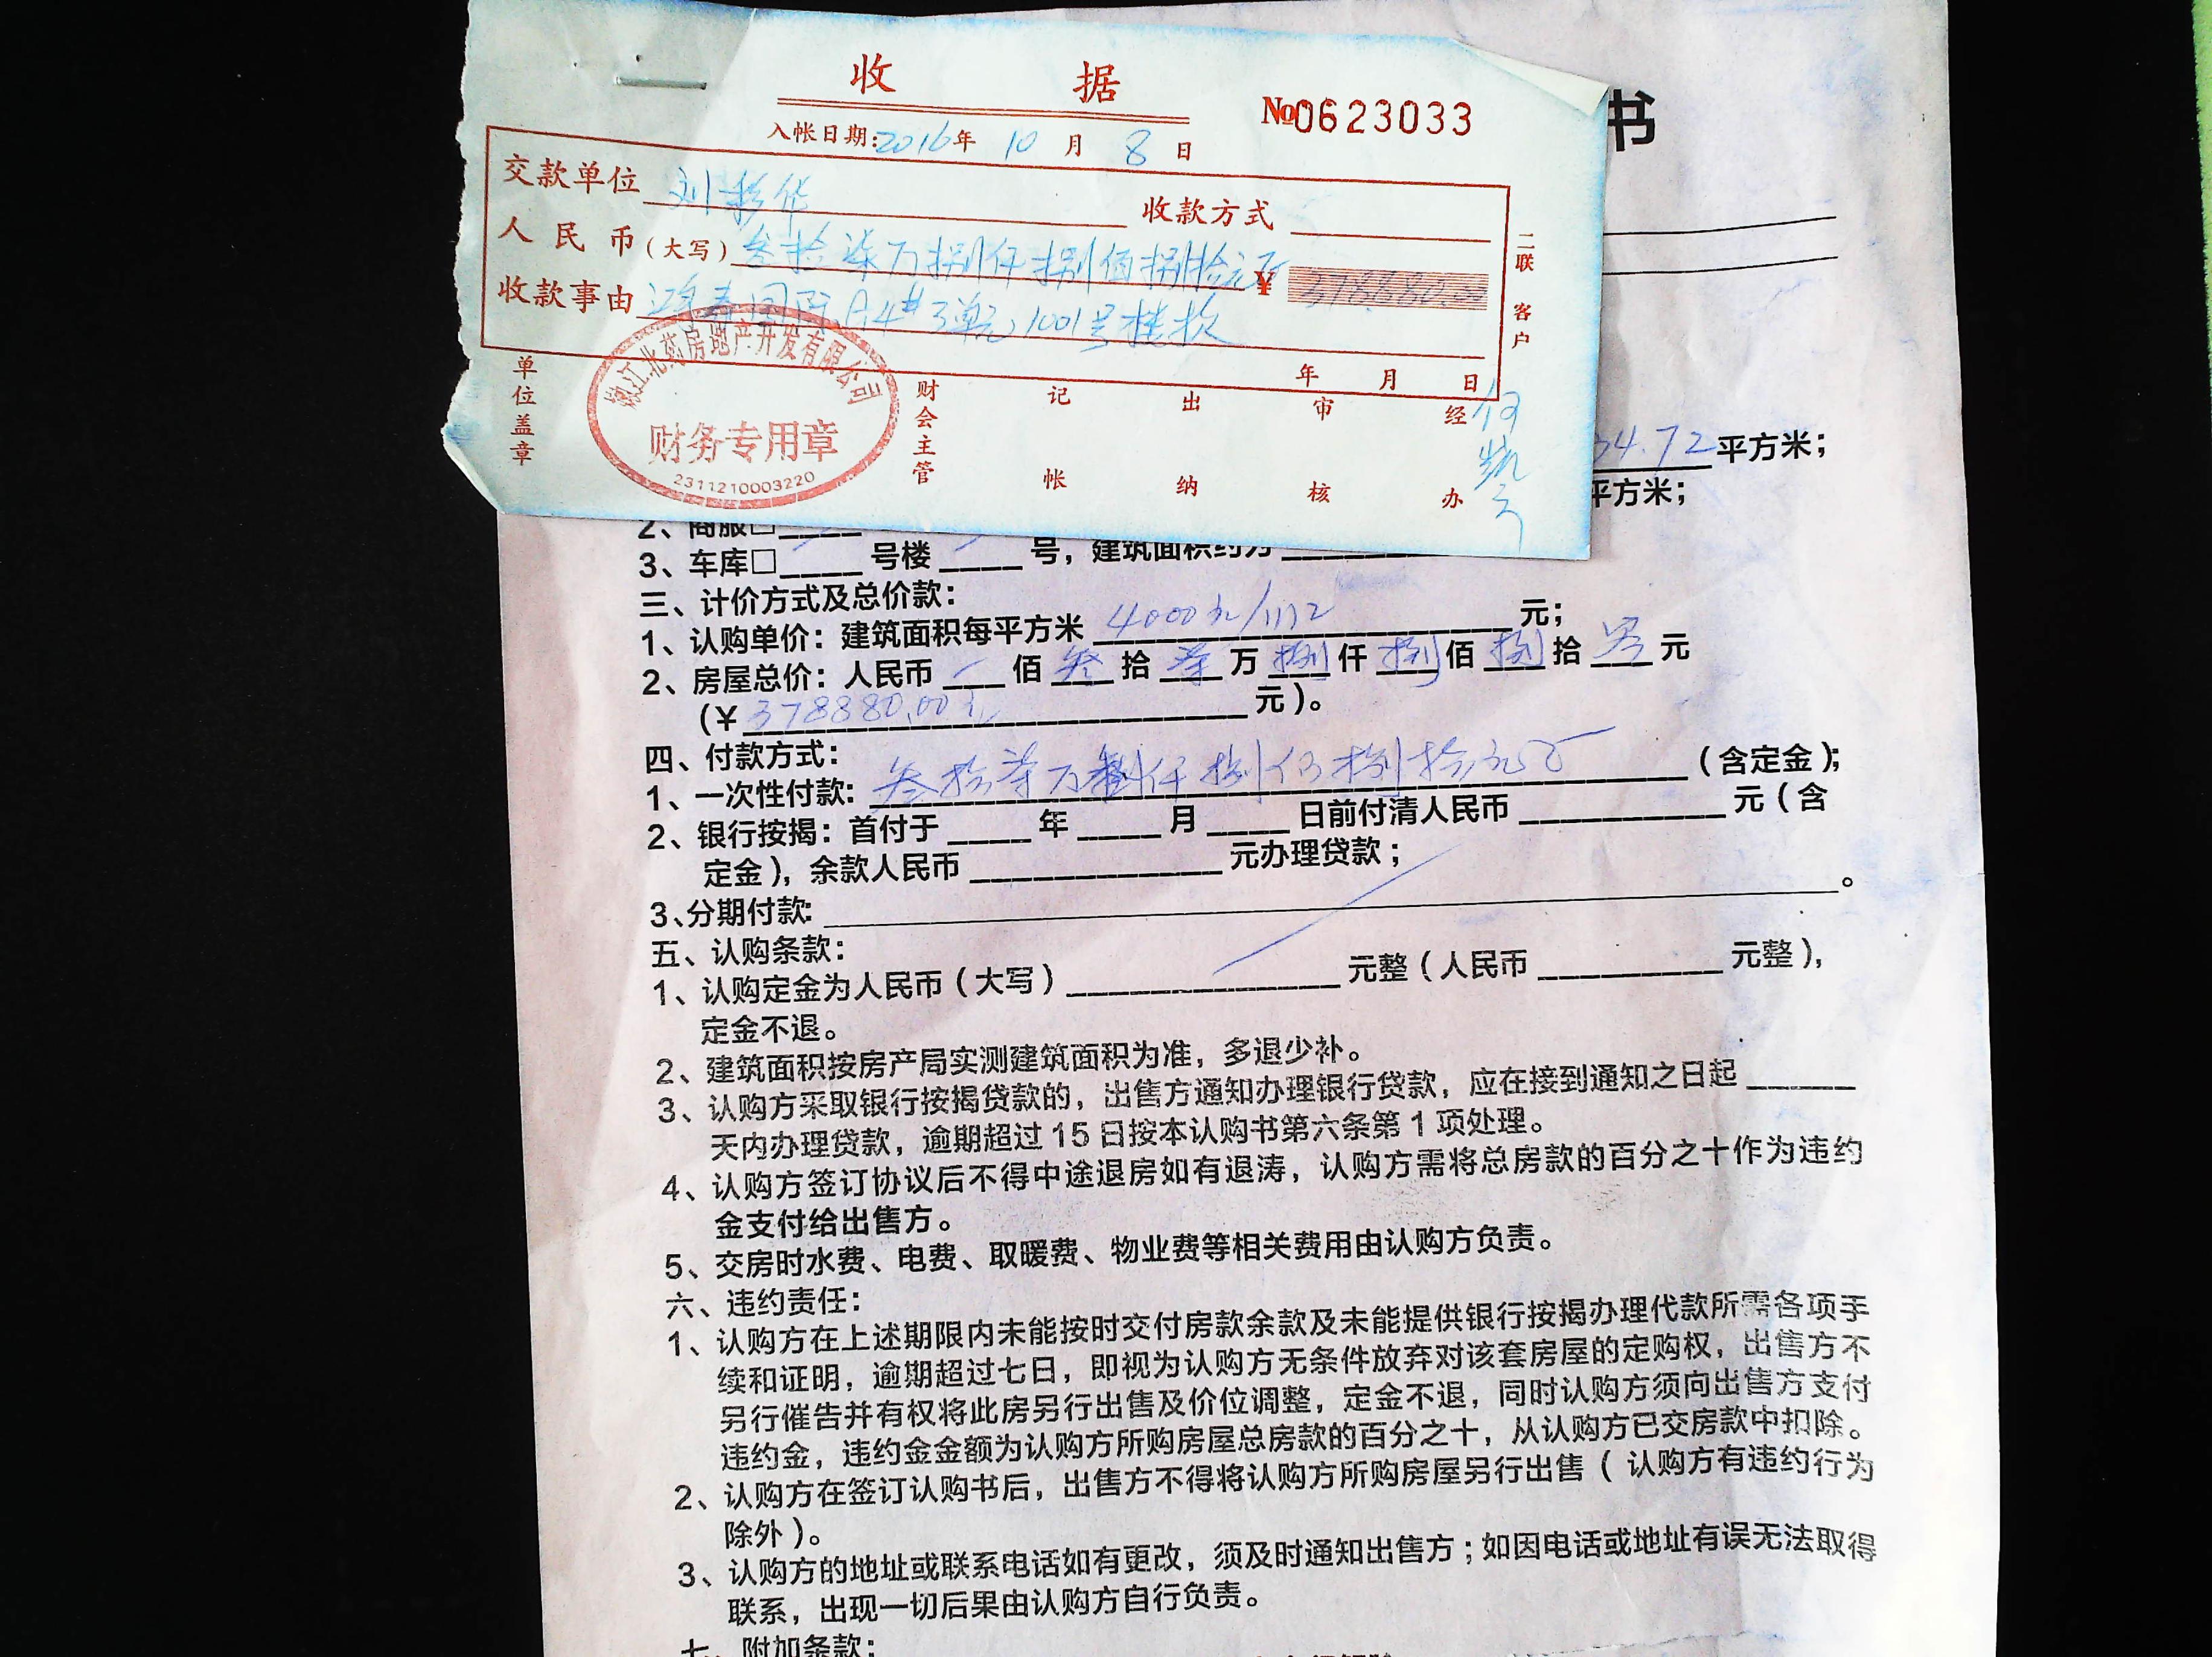 收 据
№0623033
书
入帐日期:2016年 10 月 8 日
交款单位 刘彩华 收款方式
人民币(大写) 叁拾柒万捌仟捌佰捌拾元正 ¥ 378880.00
收款事由 A4#3单元1001号楼款
二联 客户
年 月 日
单位盖章
嫩江北苑房地产开发有限公司
财务专用章
2311210003220
财会主管 记帐 出纳 审核 经办
34.72平方米；
平方米；
2、商服□
3、车库□____号楼____号，建筑面积约为
三、计价方式及总价款：
1、认购单价：建筑面积每平方米 4000元/m2 元；
2、房屋总价：人民币 佰 叁 拾 柒 万 捌 仟 捌 佰 捌 拾 零 元
(¥ 378880.00元 元）。
四、付款方式：
1、一次性付款: 叁拾柒万捌仟捌佰捌拾元正 （含定金）；
2、银行按揭：首付于____年____月____日前付清人民币________元（含
定金），余款人民币________元办理贷款；
3、分期付款: 。
五、认购条款：
1、认购定金为人民币（大写）________元整（人民币________元整），
定金不退。
2、建筑面积按房产局实测建筑面积为准，多退少补。
3、认购方采取银行按揭贷款的，出售方通知办理银行贷款，应在接到通知之日起____
天内办理贷款，逾期超过15日按本认购书第六条第1项处理。
4、认购方签订协议后不得中途退房如有退涛，认购方需将总房款的百分之十作为违约
金支付给出售方。
5、交房时水费、电费、取暖费、物业费等相关费用由认购方负责。
六、违约责任：
1、认购方在上述期限内未能按时交付房款余款及未能提供银行按揭办理代款所需各项手
续和证明，逾期超过七日，即视为认购方无条件放弃对该套房屋的定购权，出售方不
另行催告并有权将此房另行出售及价位调整，定金不退，同时认购方须向出售方支付
违约金，违约金金额为认购方所购房屋总房款的百分之十，从认购方已交房款中扣除。
2、认购方在签订认购书后，出售方不得将认购方所购房屋另行出售（认购方有违约行为
除外）。
3、认购方的地址或联系电话如有更改，须及时通知出售方；如因电话或地址有误无法取得
联系，出现一切后果由认购方自行负责。
七、附加条款：